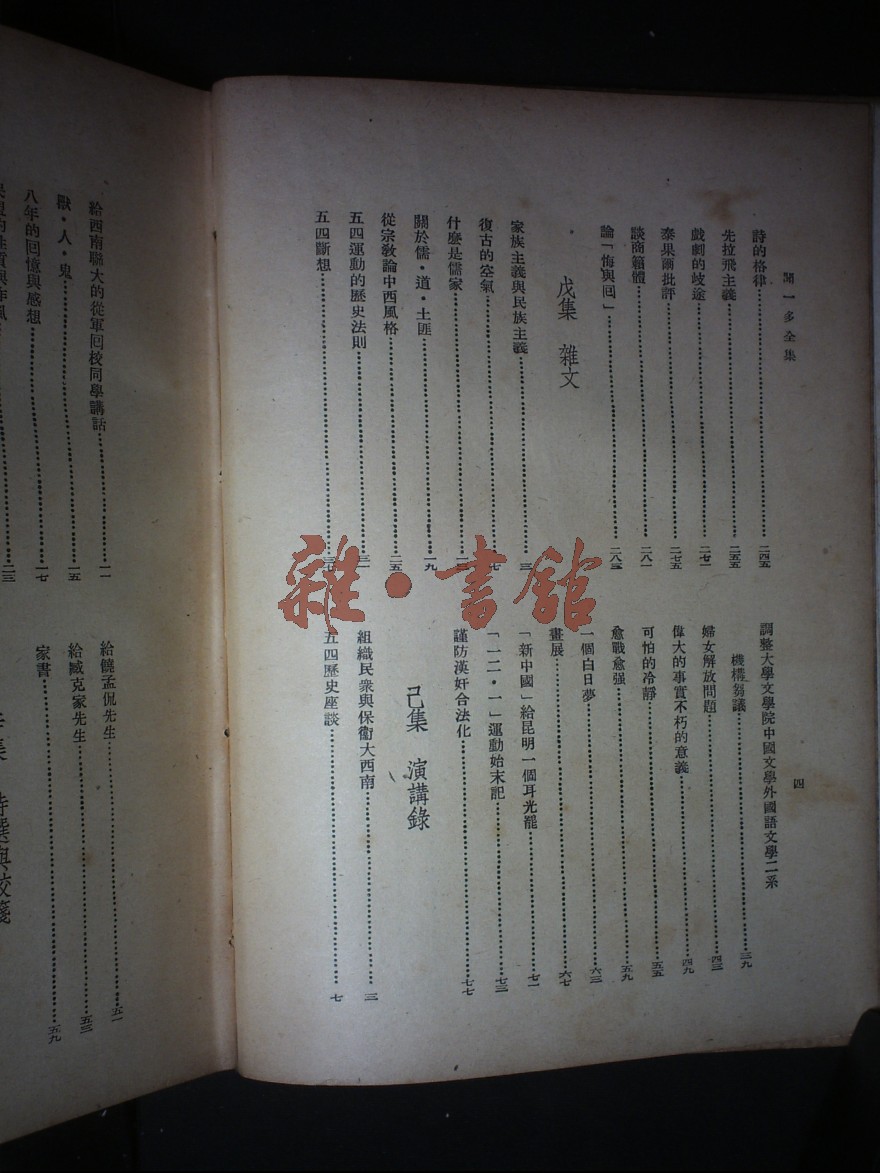 聞一多全集
四
詩的格律……二四五
先拉飛主義……二五五
戲劇的歧途……二七一
泰果爾批評……二七五
談商籟體……二八一
論「悔與回」……二八三
戊集 雜文
家族主義與民族主義……三
復古的空氣……七
什麼是儒家
關於儒・道・土匪……一九
從宗教論中西風格……二五
五四運動的歷史法則……三一
五四斷想
調整大學文學院中國文學外國語文學二系
機構芻議……三九
婦女解放問題……四三
偉大的事實不朽的意義……四九
可怕的冷靜……五五
愈戰愈强……五九
一個白日夢……六三
畫展……六七
「新中國」給昆明一個耳光罷……七一
「一二・一」運動始末記……七三
謹防漢奸合法化……七七
己集 演講錄
組織民衆與保衞大西南……三
五四歷史座談……七
給西南聯大的從軍回校同學講話……一一
獸・人・鬼……一五
八年的回憶與感想……一七
……二三
給饒孟侃先生……五一
給臧克家先生……五三
家書……五九
詩選與校箋
雜・書館